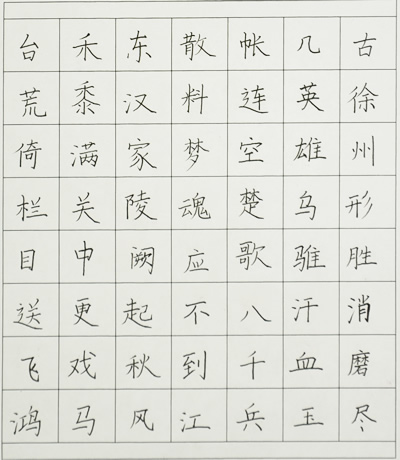 古徐州形胜消磨尽
几英雄乌骓汗血玉
帐连空楚歌八千兵
散料梦魂应不到江
东汉家陵阙起秋风
禾黍满关中更戏马
台荒倚栏目送飞鸿